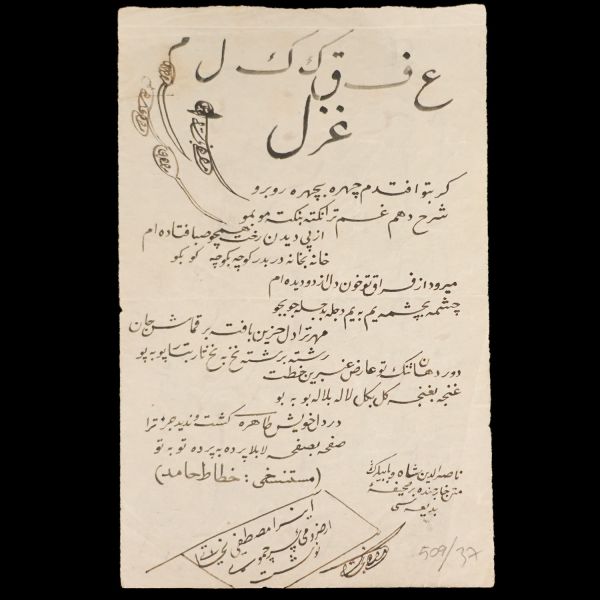 ع ف ق ک ک ل م
غزل
گر بتو افتدم چهره بچهره روبرو
شرح دهم غم ترا نکته بنکته مو بمو
از پی دیدن رخت همچو صبا فتاده ام
خانه بخانه در بدر کوچه بکوچه کو بکو
میرود از فراق تو خون دل از دو دیده ام
چشمه بچشمه یم به یم دجله بدجله جو بجو
مهر ترا دل حزین بافته بر قماش جان
رشته برشته نخ به نخ تار بتار پو به پو
دور دهان تنگ تو عارض عنبرین خطت
غنچه بغنچه گل بگل لاله بلاله بو به بو
در دل خویش طاهره گشت و ندید جز ترا
صفحه بصفحه لا بلا پرده به پرده تو به تو
(مستنسخی: خطاط حامد)
ناصرالدین شاه
اینرا مصطفی
ارضرومی
نوشت
509/37